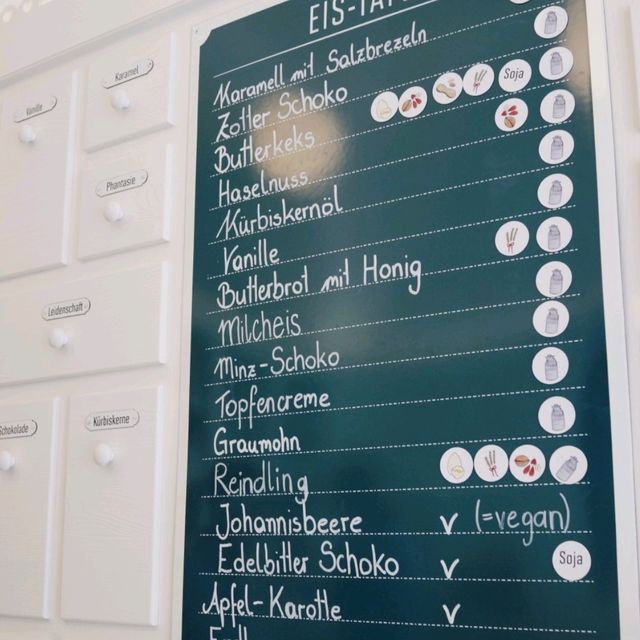 EIS-TAF
Karamell mit Salzbrezeln
Zotter Schoko Soja
Butterkeks
Haselnuss
Kürbiskernöl
Vanille
Butterbrot mit Honig
Milcheis
Minz-Schoko
Topfencreme
Graumohn
Reindling
Johannisbeere v (=vegan)
Edelbitter Schoko v Soja
Apfel-Karotte v
Karamel
Vanille
Phantasie
Leidenschaft
Schokolade
Kürbiskerne